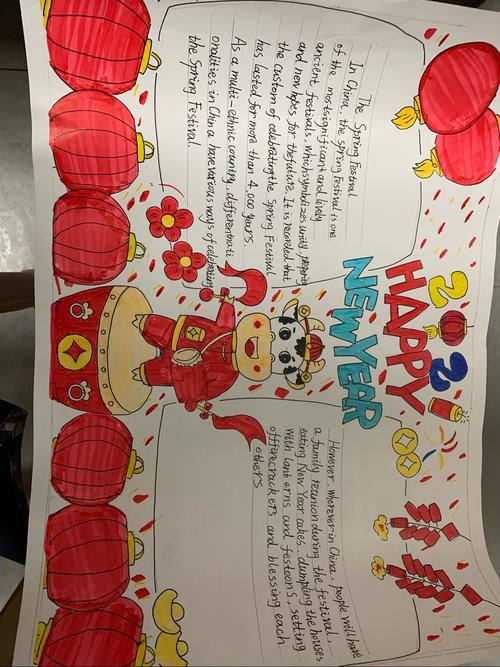 2 2
HAPPY
NEW YEAR
The Spring Festival
In China, the spring Festival is one
of the mostsignificant and lively
ancient festivals, which symbolizes unity,
and new hopes for the future. It is recorded that
the custom of celebrating the Spring Festival
has lasted for more than 4,000 years.
As a multi-ethnic country, different nati
onalities in China have various ways of celebrating
the Spring Festival.
However, wherever in China, people will have
a family reunion during the festival,
eating New Year cakes, dumpling the houses
with lanterns and festoons, setting
offfirecrackers and blessing each
others